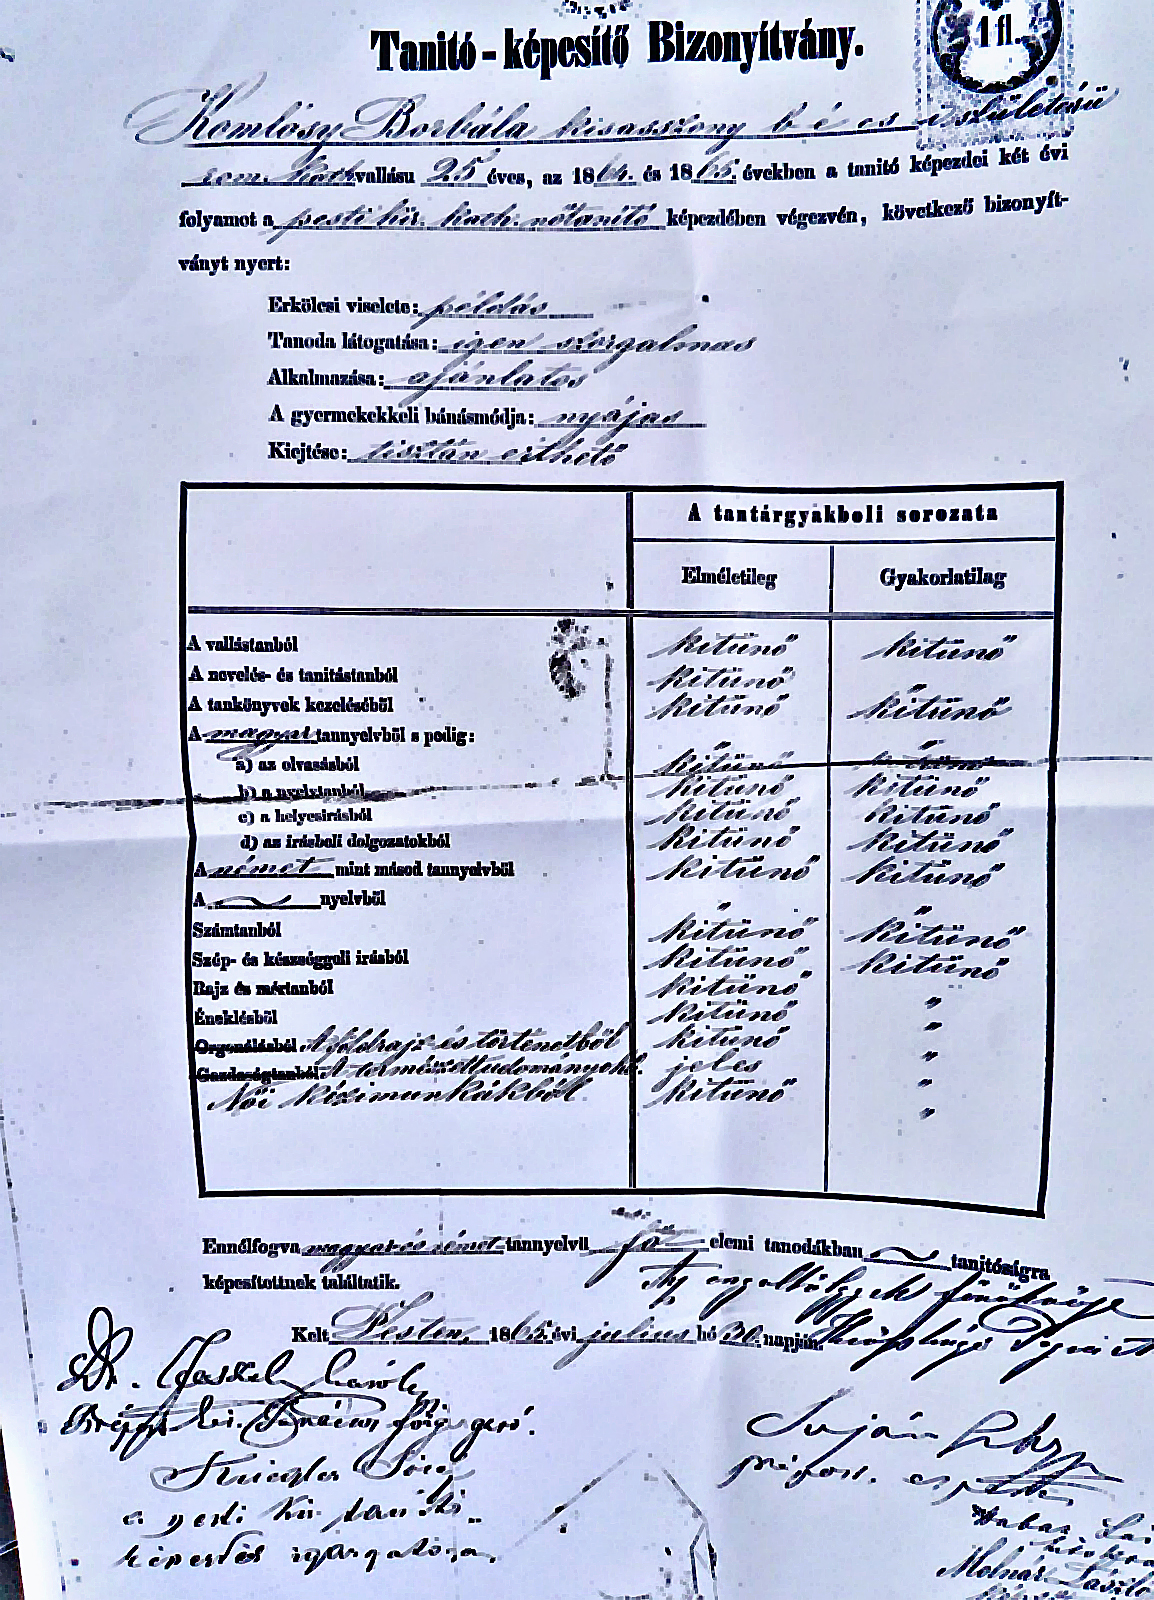 1 fl.
Tanitó-képesítő Bizonyítvány.
Komlósy Borbála kisasszony bécsi születésü
rom. kath. vallásu 25 éves, az 1864. és 1865. években a tanitó képezdei két évi
folyamot a pesti kir. kath. nőtanitó képezdében végezvén, következő bizonyít-
ványt nyert:
Erkölcsi viselete: példás
Tanoda látogatása: igen szorgalmas
Alkalmazása: ajánlatos
A gyermekekkeli bánásmódja: nyájas
Kiejtése: tisztán érthető
A tantárgyakbeli sorozata
Elméletileg Gyakorlatilag
A vallástanból kitünő kitünő
A nevelés- és tanitástanból kitünő
A tankönyvek kezeléséből kitünő kitünő
A magyar tannyelvből s pedig: " "
a) az olvasásból kitünő kitünő
b) a nyelvtanból kitünő kitünő
c) a helyesirásból kitünő kitünő
d) az irásbeli dolgozatokból kitünő kitünő
A német mint másod tannyelvből kitünő kitünő
A nyelvből " "
Számtanból kitünő kitünő
Szép- és készséggeli irásból kitünő kitünő
Rajz és mértanból kitünő "
Éneklésből kitünő "
Orgonálásból A földrajz és történetből kitünő "
Gazdaságtanból A természettudományokb. jeles "
Női kézimunkákból kitünő "
Ennélfogva magyar és német tannyelvü fő elemi tanodákban tanitóságra
képesítettnek találtatik.
Kelt Pesten, 1865 évi julius hó 30. napján.
Dr.
a pesti kir. tanító
képezdei igazgatója.
Molnár László